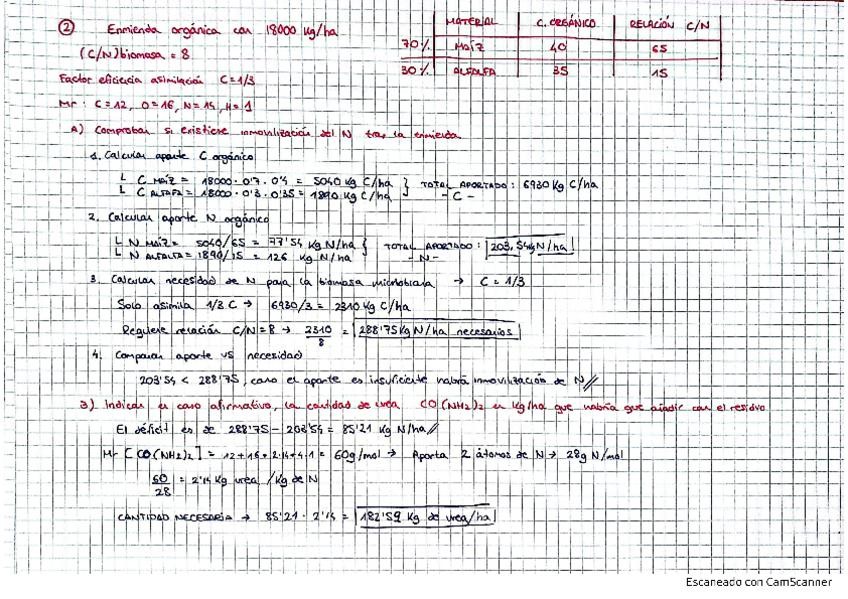 ② Enmienda orgánica con 18000 kg/ha
(C/N)biomasa = 8
Factor eficiencia asimilación C = 1/3
Mr: C=12, O=16, N=14, H=1
MATERIAL C. ORGÁNICO RELACIÓN C/N
70% MAÍZ 40 65
30% ALFALFA 35 15
A) Comprobar si existiese inmovilización del N tras la enmienda.
1. Calcular aporte C orgánico
L C MAÍZ = 18000·0'7·0'4 = 5040 kg C/ha } TOTAL APORTADO: 6930 kg C/ha
L C ALFALFA = 18000·0'3·0'35 = 1890 kg C/ha - C -
2. Calcular aporte N orgánico
L N MAÍZ = 5040/65 = 77'54 kg N/ha } TOTAL APORTADO: 203,54kg N/ha
L N ALFALFA = 1890/15 = 126 kg N/ha - N -
3. Calcular necesidad de N para la biomasa microbiana → C = 1/3
Solo asimila 1/3 C → 6930/3 = 2310 kg C/ha
Requiere relación C/N = 8 → 2310/8 = 288'75 kg N/ha necesarios
4. Comparar aporte vs necesidad
203'54 < 288'75, como el aporte es insuficiente habrá inmovilización de N //
B) Indicar en caso afirmativo, la cantidad de urea CO(NH2)2 en kg/ha que habría que añadir con el residuo
El déficit es de 288'75 - 203'54 = 85'21 kg N/ha //
Mr [CO(NH2)2] = 12+16+2·14+4·1 = 60g/mol → Aporta 2 átomos de N → 28g N/mol
60/28 = 2'14 kg urea /kg de N
CANTIDAD NECESARIA → 85'21 · 2'14 = 182'59 kg de urea/ha
Escaneado con CamScanner